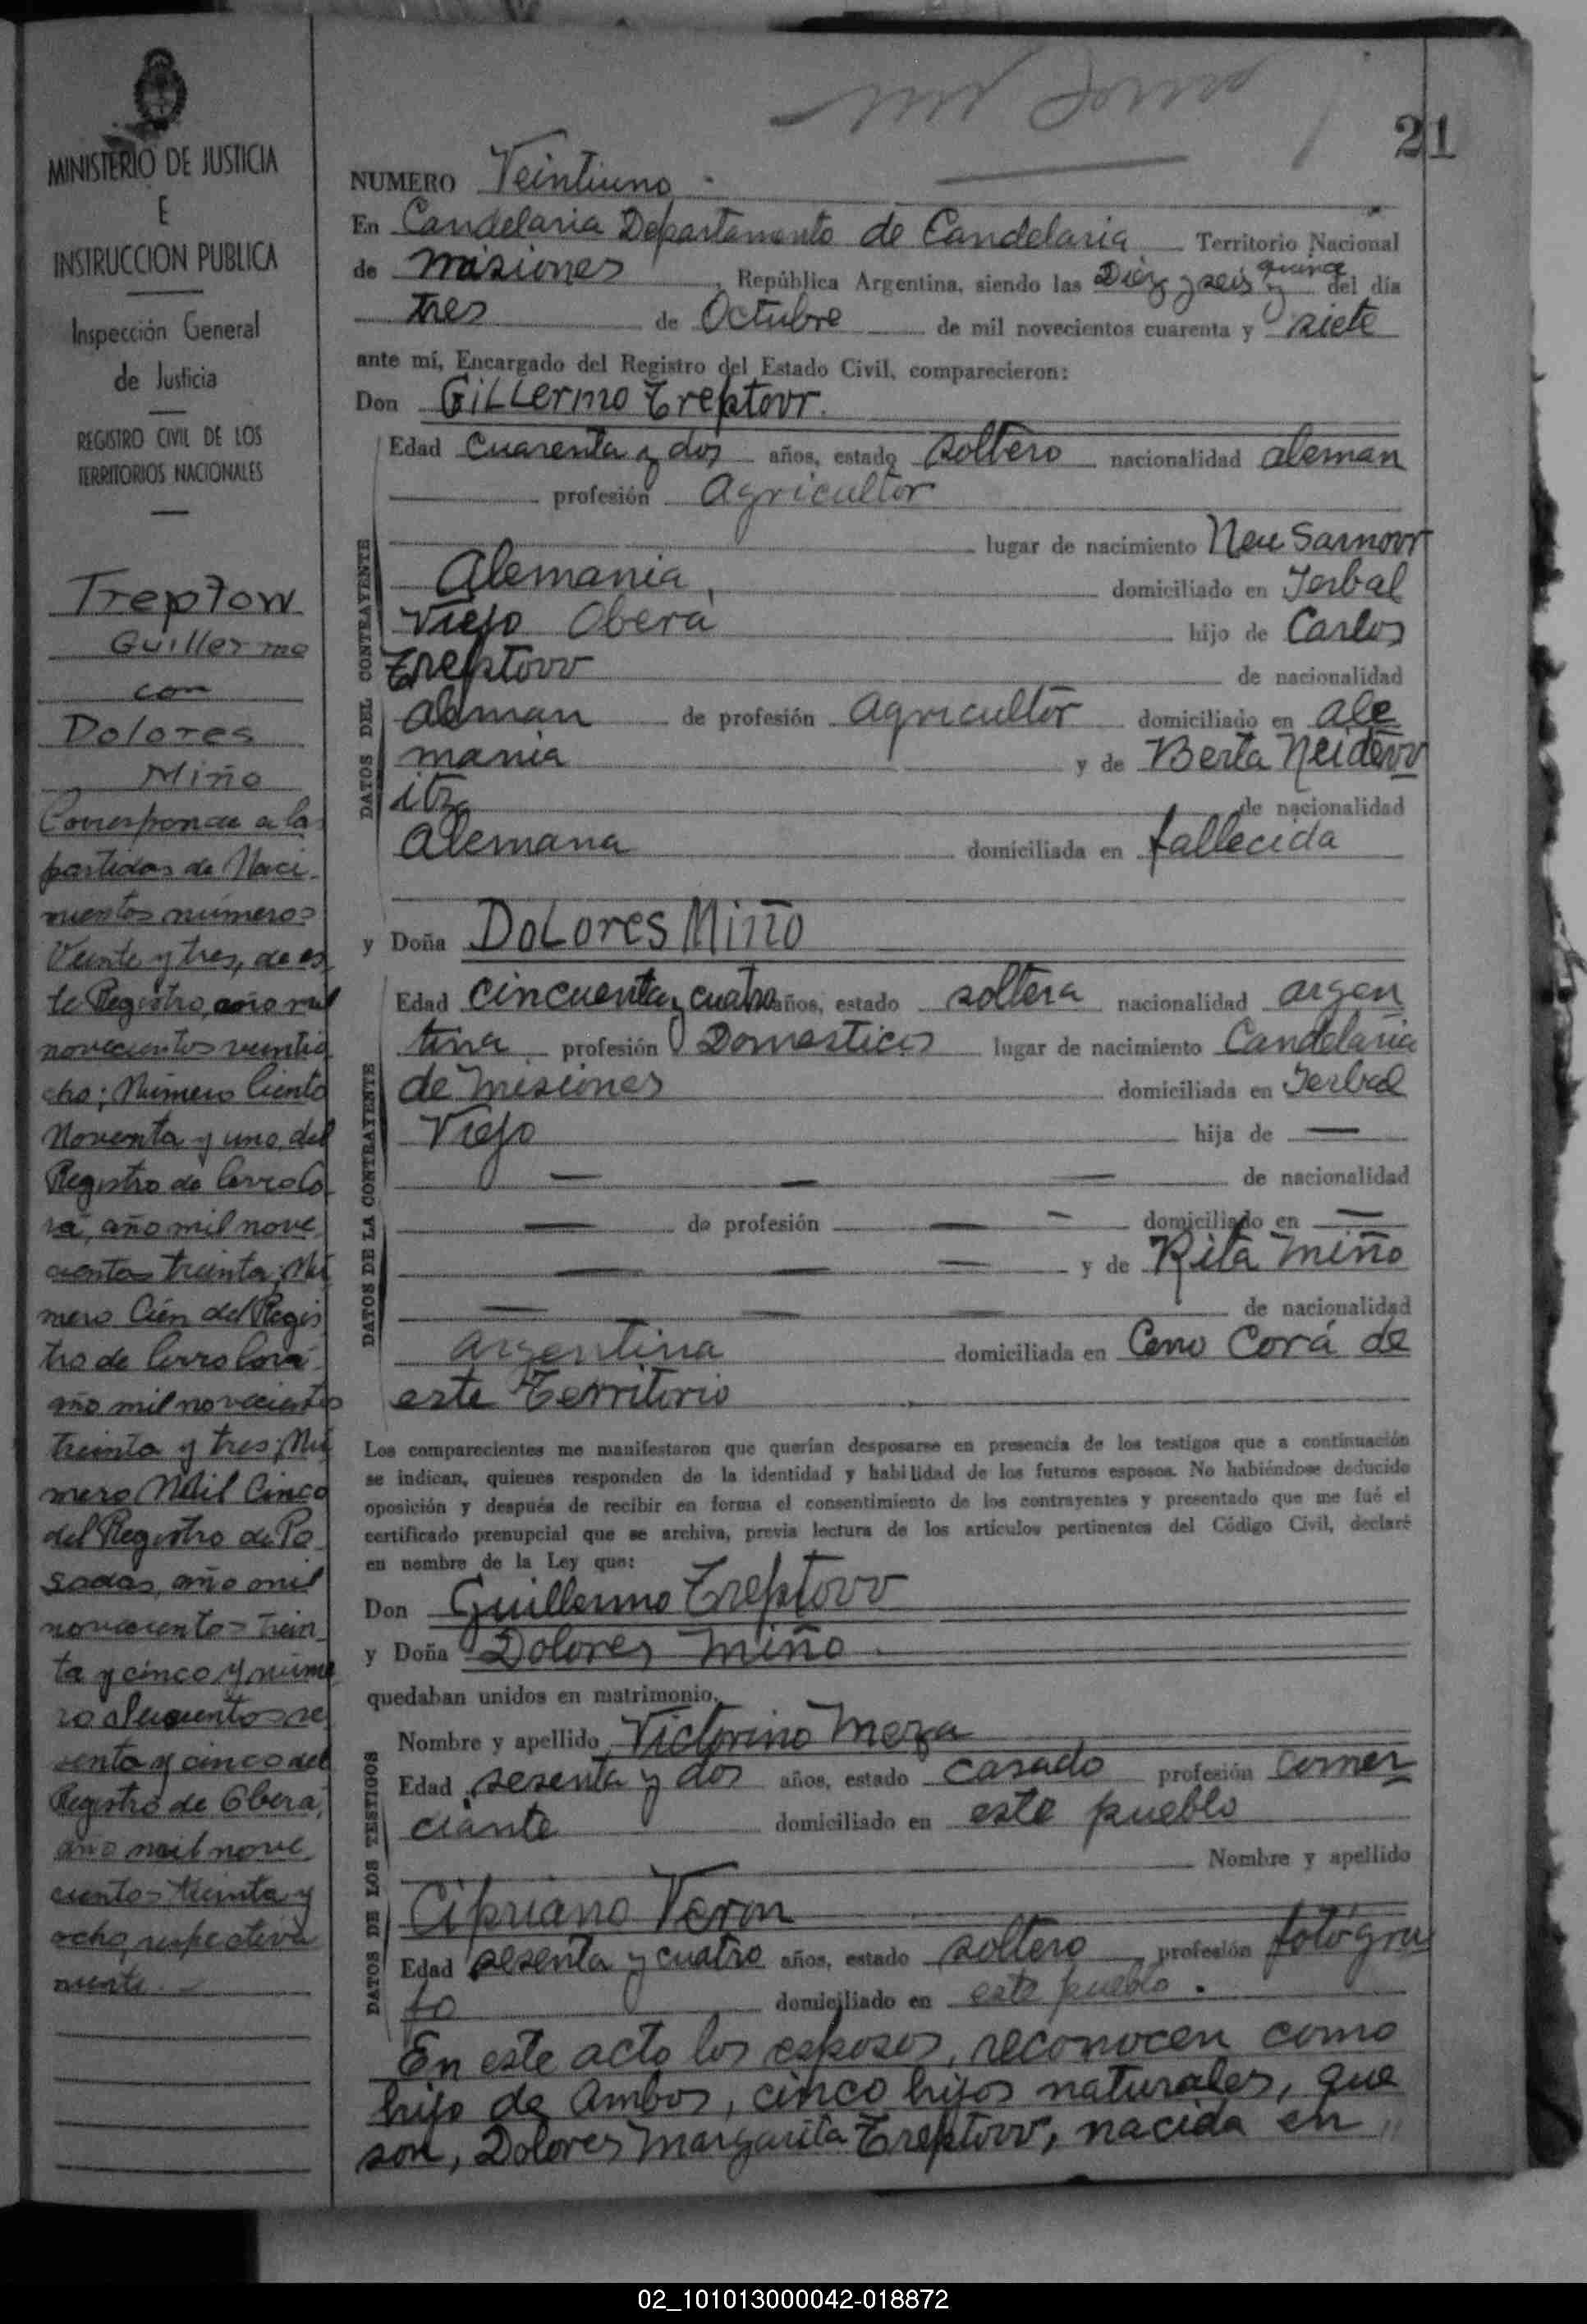 21
MINISTERIO DE JUSTICIA
E
INSTRUCCION PUBLICA
Inspección General
de Justicia
REGISTRO CIVIL DE LOS
TERRITORIOS NACIONALES
Treptow
Guillermo
con
Dolores
Miño
Corresponde a las
partidas de Naci-
mientos números
Veinte y tres, de es-
te Registro, año mil
novecientos veintio
cho; Número Ciento
Noventa y uno, del
Registro de Cerro Co-
rá, año mil nove
cientos treinta; Nú
mero Cién del Regis
tro de Cerro Corá
año mil novecientos
treinta y tres; Nú
mero Mil Cinco
del Registro de Po
sadas, año mil
novecientos trein-
ta y cinco y núme
ro Seiscientos se
senta y cinco del
Registro de Oberá,
año mil nove-
cientos treinta y
ocho, respectiva
mente.-
NUMERO Veintiuno
En Candelaria Departamento de Candelaria Territorio Nacional
de Misiones, República Argentina, siendo las Diéz y seis y quince del día
tres de Octubre de mil novecientos cuarenta y siete
ante mí, Encargado del Registro del Estado Civil, comparecieron:
Don GiLLermo Treptovr.
Edad cuarenta y dos años, estado soltero nacionalidad aleman
profesión Agricultor
lugar de nacimiento Neu Sarnovr
Alemania, domiciliado en Jerbal
Viejo Oberá hijo de Carlos
Treptovv de nacionalidad
aleman de profesión agricultor domiciliado en ale
mania y de Berta Neidevv
itz de nacionalidad
Alemana domiciliada en fallecida
y Doña DoLores Miño
Edad cincuenta y cuatro años, estado soltera nacionalidad argen
tina profesión Domesticos lugar de nacimiento Candelaria
de Misiones domiciliada en Jerbal
Viejo hija de —
— — — de nacionalidad
— de profesión — — domiciliado en —
— — — y de Rita Miño
— — — de nacionalidad
argentina domiciliada en Cerro Corá de
este Territorio
Los comparecientes me manifestaron que querían desposarse en presencia de los testigos que a continuación
se indican, quienes responden de la identidad y habilidad de los futuros esposos. No habiéndose deducido
oposición y después de recibir en forma el consentimiento de los contrayentes y presentado que me fué el
certificado prenupcial que se archiva, previa lectura de los artículos pertinentes del Código Civil, declaré
en nombre de la Ley que:
Don Guillermo Treptovv
y Doña Dolores Miño
quedaban unidos en matrimonio.
Nombre y apellido Victorino Meza
Edad sesenta y dos años, estado casado profesión comer
ciante domiciliado en este pueblo
Nombre y apellido
Cipriano Veron
Edad sesenta y cuatro años, estado soltero profesión fotógra
fo domiciliado en este pueblo.
En este acto los esposos, reconocen como
hijo de Ambos, cinco hijos naturales, que
son, Dolores Margarita Treptovv, nacida en "
DATOS DEL CONTRAYENTE
DATOS DE LA CONTRAYENTE
DATOS DE LOS TESTIGOS
02_101013000042-018872